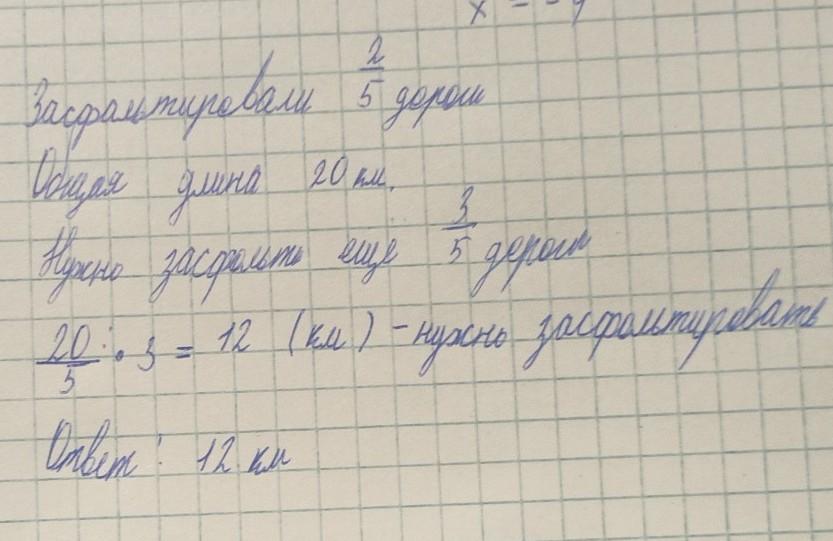 x = - 9
Засфальтировали 2/5 дороги
Общая длина 20 км.
Нужно засфальть еще 3/5 дороги
20/5 • 3 = 12 (км) - нужно засфальтировать
Ответ: 12 км